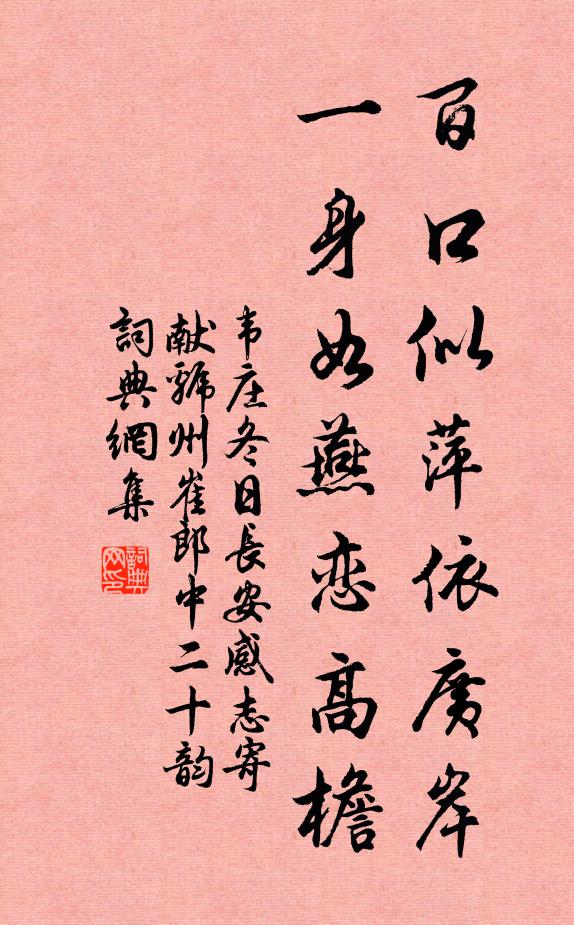 百口似萍依廣岸
一身如燕恋高檐
韦庄冬日長安感志寄
献虢州崔郎中二十韵
詞典網集
詞典网印